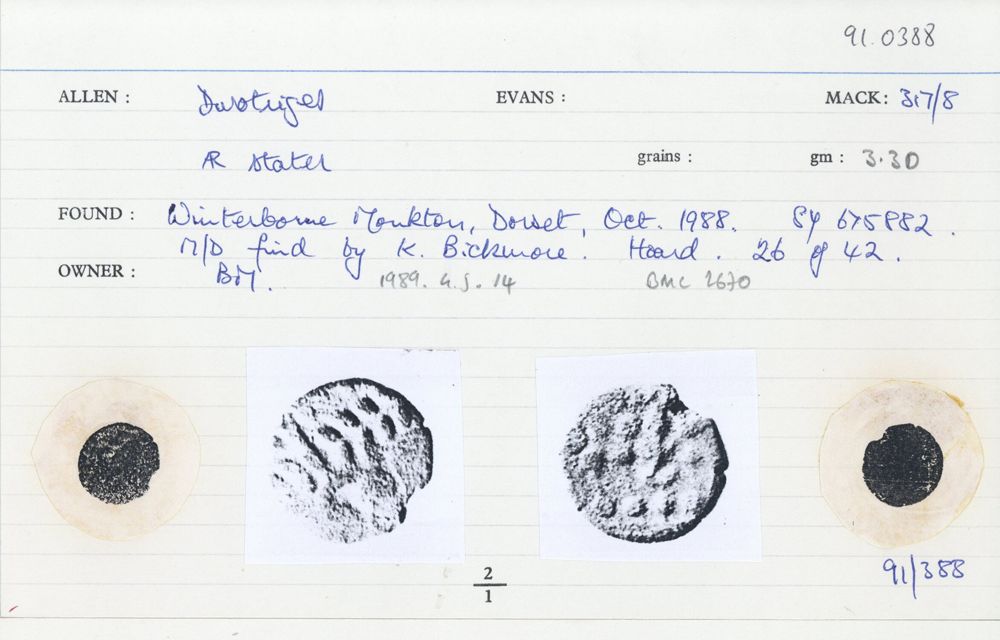 91.0388
ALLEN : Durotriges EVANS : MACK: 317/8
AR stater grains : gm : 3.30
FOUND : Winterborne Monkton, Dorset, Oct. 1988. SY 675882.
M/D find by K. Bickmore. Hoard. 26 of 42.
OWNER : BM. 1989. 4.5. 14 BMC 2670
2
1
91/388